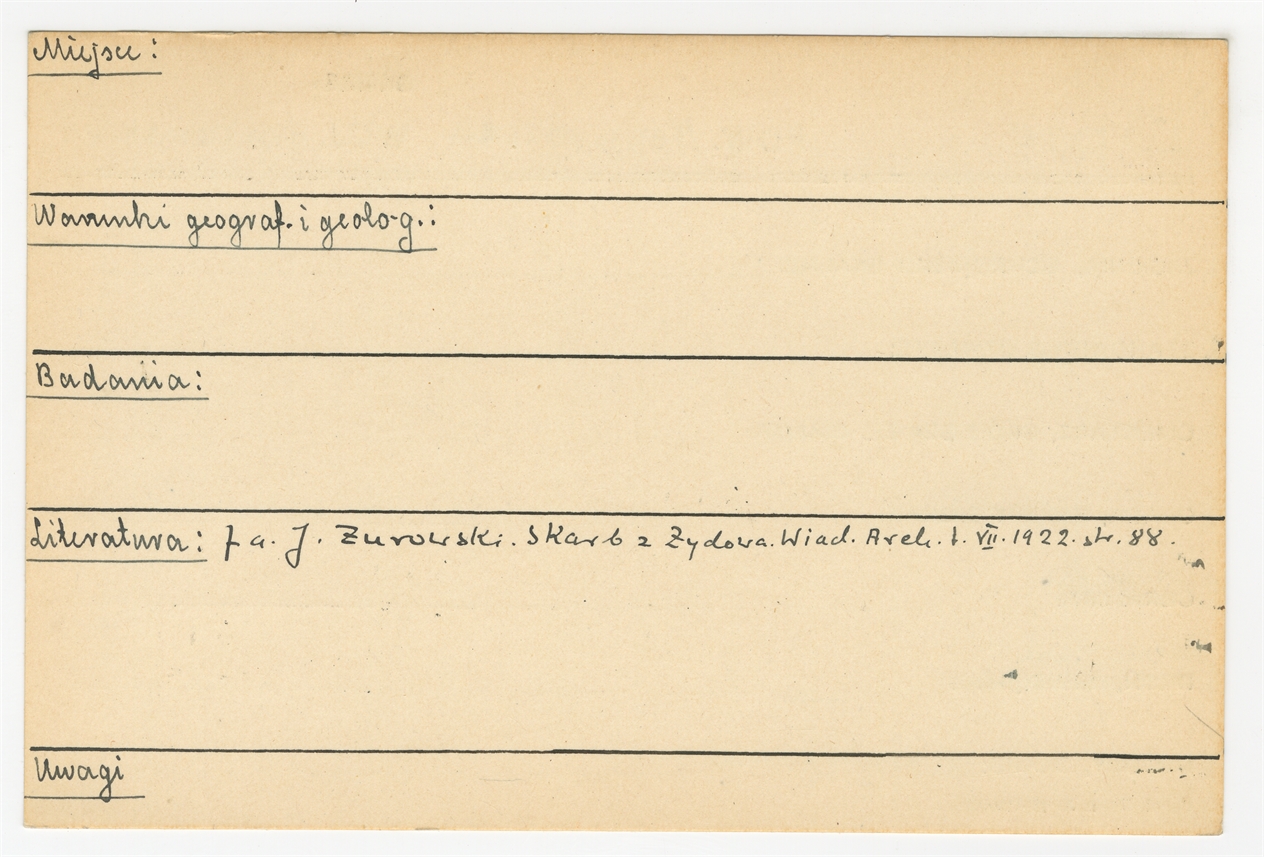 Miejsce:
Warunki geograf. i geolog.:
Badania:
Literatura: f a. J. Żurowski. Skarb z Żydowa. Wiad. Arch. t. VII. 1922. str. 88.
Uwagi